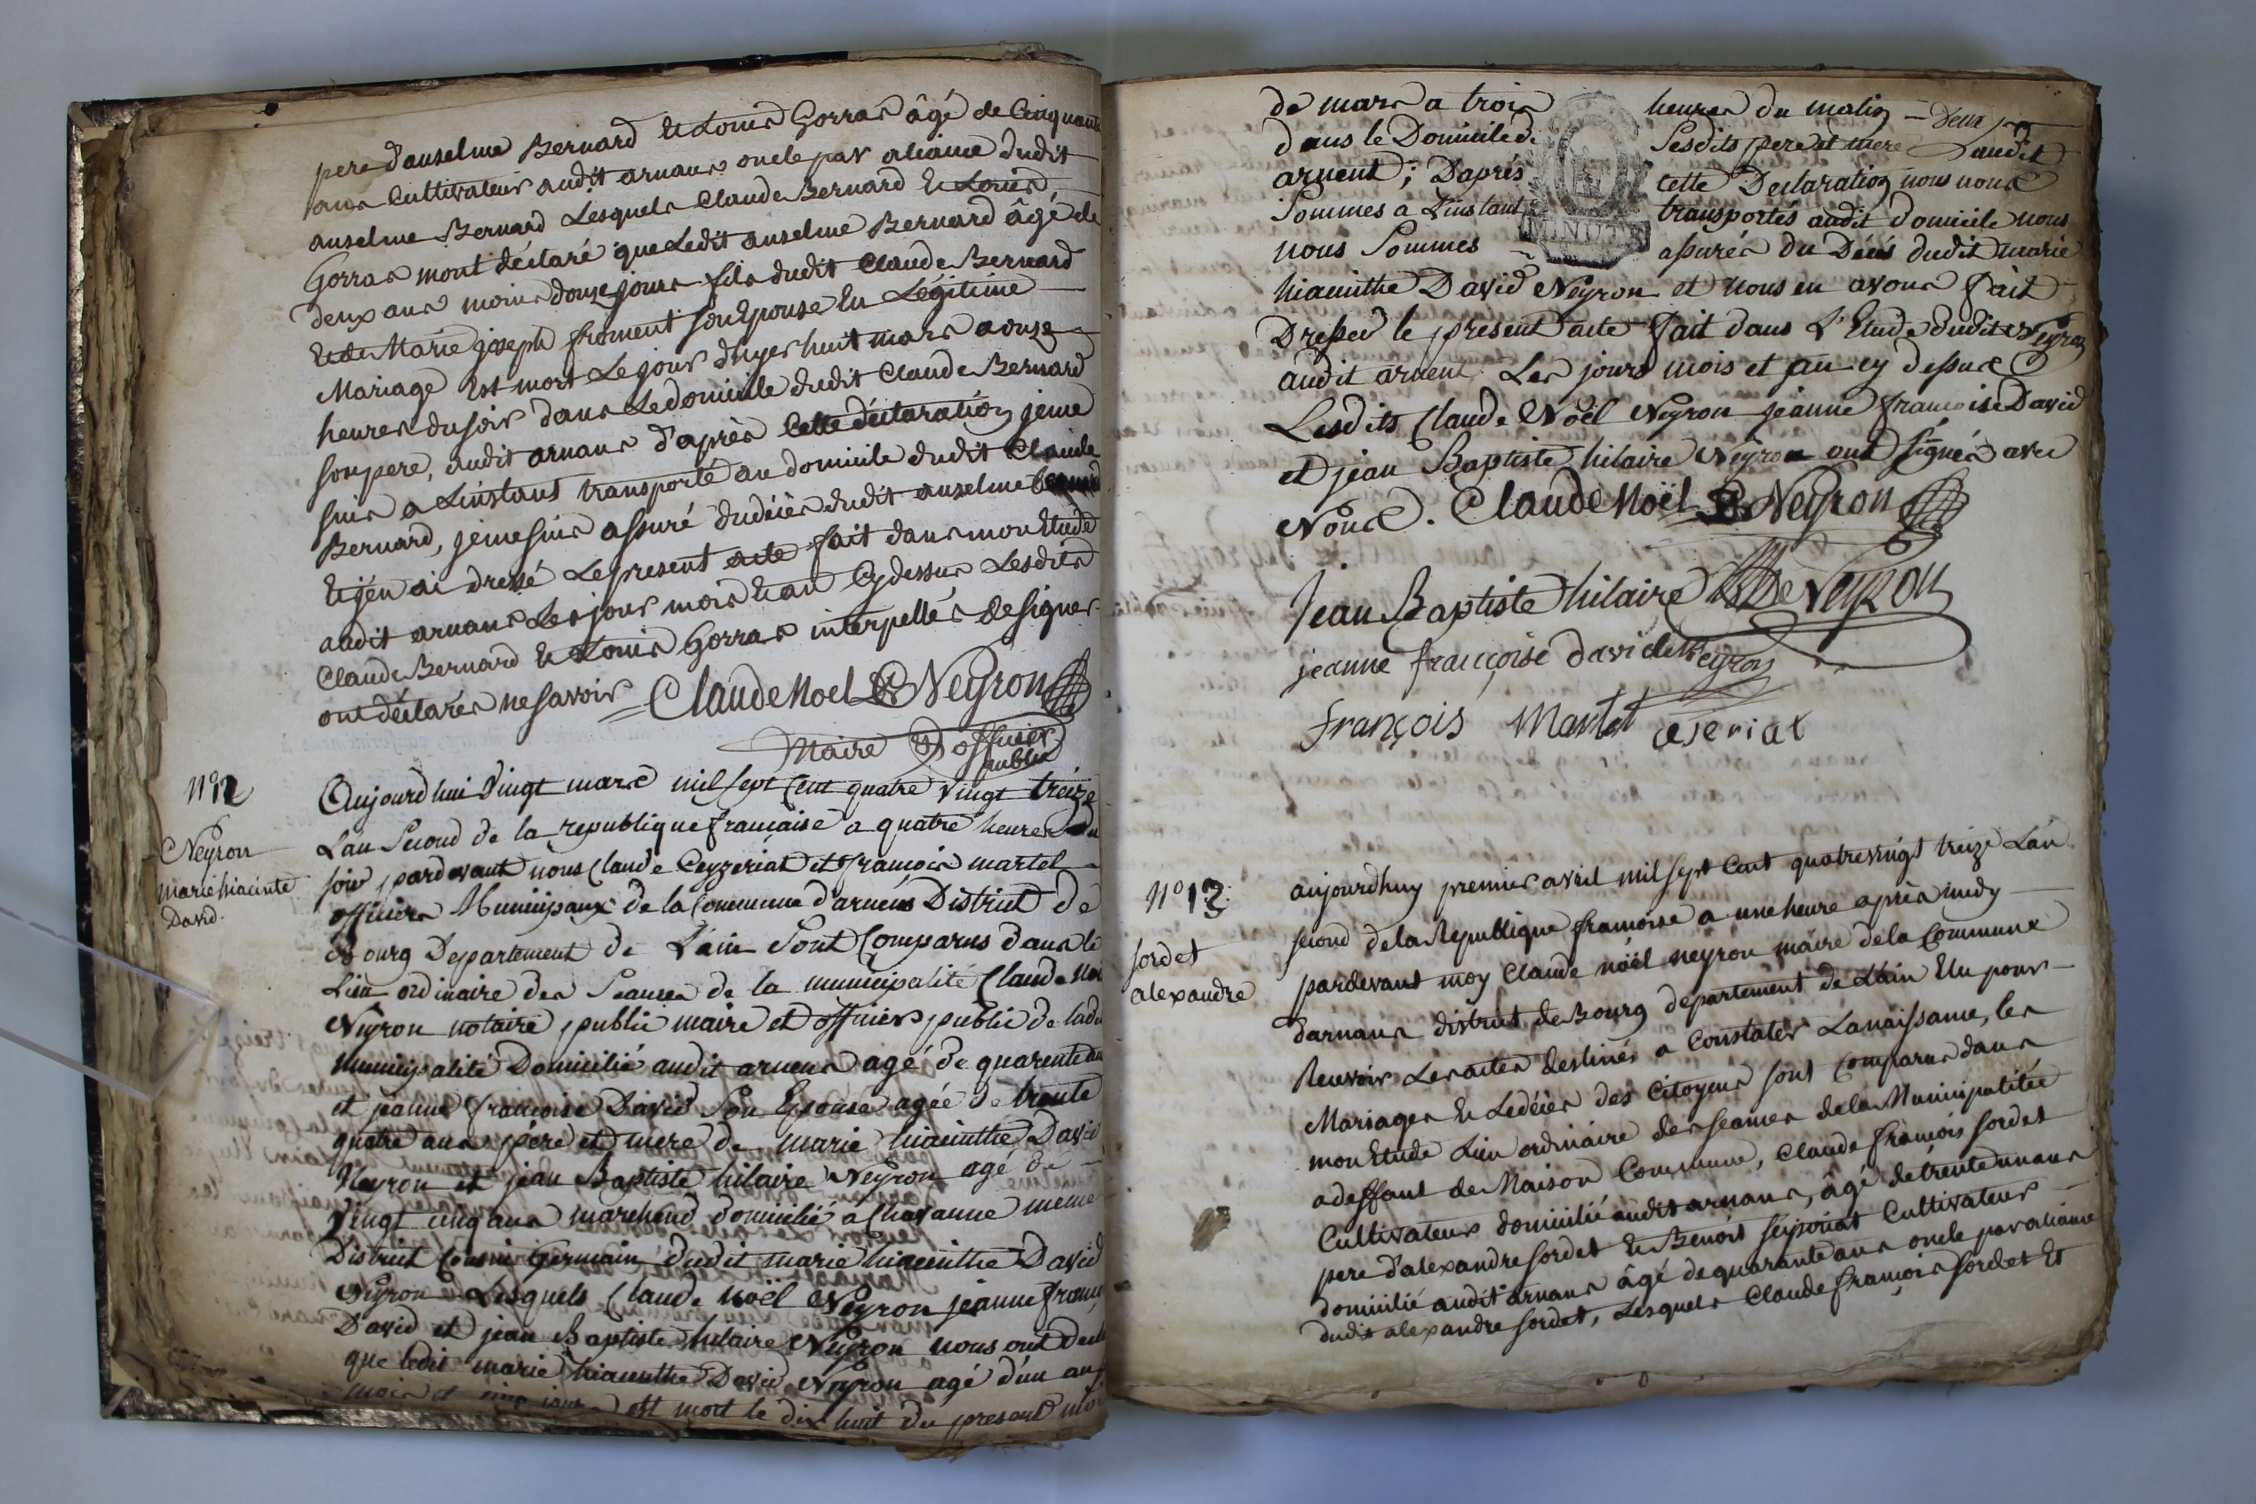 pere d'anselme Bernard et Louis Gorras âgé de Cinquante
ans Cultivateur audit arnans oncle par aliance dudit
anselme Bernard Lesquels Claude Bernard et Louis
Gorras mont déclaré que Ledit anselme Bernard âgé de
deux ans moins douze jours fils dudit Claude Bernard
et de Marie joseph froment son Epouse En Légitime
Mariage Est mort Le jour d'hyer huit mars a onze
heures du soir dans Le domicile dudit Claude Bernard
son pere, audit arnans d'après Cette déclaration je me
suis a Linstant transporté au domicile dudit Claude
Bernard, je me suis assuré du décès dudit anselme Bernard
et j'en ai dressé Le present acte fait dans mon Etude
audit arnans Les jour mois et an Cy dessus Lesdits
Claude Bernard et Louis Gorras interpellés de signer
ont déclarés ne savoir Claude Noel Neyron
Maire et officier
public
N° 12
Neyron
marie hiacinte
David.
Aujourdhui vingt mars mil sept Cent quatre vingt treize
L'an Second de la republique francaise a quatre heures du
soir pardevant nous Claude Ceyzeriat et francois martel
officiers Municipaux de la Commune d'arnens District de
Bourg Departement de L'ain Sont Comparus dans le
Lieu ordinaire des Seances de la municipalité Claude Noel
Neyron notaire public maire et officier public de ladte
municipalité Domicilié audit arnens agé de quarente ans
et jeanne francoise David Son Epouse agée de trente
quatre ans père et mere de marie hiacinthe David
Neyron et jean Baptiste hilaire Neyron agé de
vingt cinq ans marchand domicilié á Chavanne meme
District Cousin Germain dudit marie hiacinthe David
Neyron Lesquels Claude Noël Neyron jeanne
David et jean Baptiste hilaire Neyron nous ont
que ledit marie hiacinthe David Neyron agé d'un an
mois et cinq jours est mort le dix huit du present mois
de mars a trois heures du matin
dans le Domicile de Sesdits pere et mere audit
arnent; D'aprés cette Declaration nous nous
Sommes a L'instant transportés audit domicile nous
nous Sommes assurés du Décés dudit marie
hiacinthe David Neyron et nous en avons fait
Dresser le present acte fait dans L'Etude dudit Neyron
audit arnent Les jours mois et an cy dessus
Lesdits Claude Noël Neyron jeanne francoise David
et jean Baptiste hilaire Neyron ont signés avec
Nous. Claude Noël Neyron
MINUTE
Jean Baptiste hilaire Neyron
jeanne françoise david Neyron
françois Martel
N° 13.
sordet
alexandre
aujourdhuy premier avril mil sept Cent quatrevingt treize L'an
second de la Republique francoise a une heure après midy
pardevant moy Claude nöel neyron maire de la Commune
d'arnans district de Bourg departement de L'ain Elu pour
Recevoir Les actes destinés a Constater La naissance, les
Mariages et Le décès des Citoyens sont Comparus dans
mon Etude Lieu ordinaire des seances de la Municipalitée
a deffaut de Maison Commune, Claude francois sordet
Cultivateur domicilié audit arnans, âgé de trente un ans
pere d'alexandre sordet et Benoit Cultivateur
domicilié audit arnans âgé de quarante ans oncle par aliance
dudit alexandre sordet, Lesquels Claude francois sordet Et